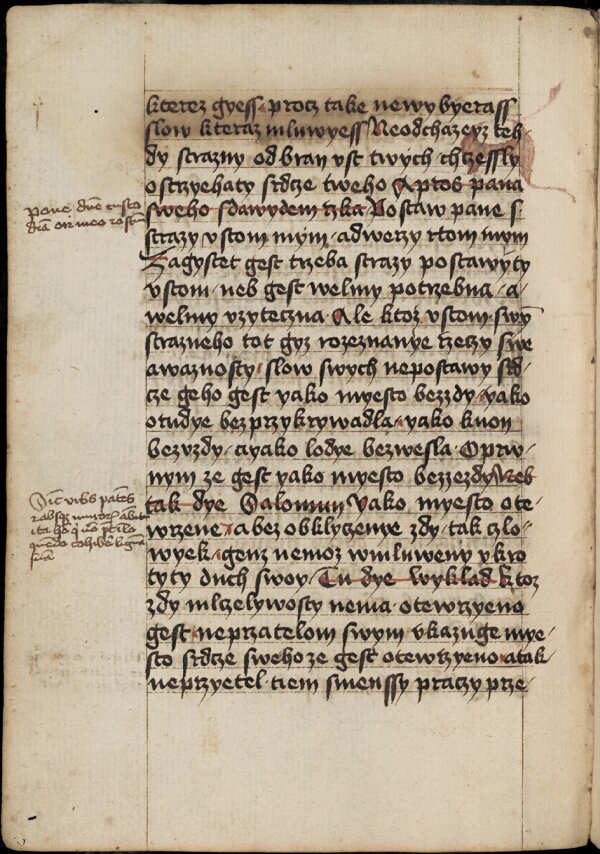 kterez gyess procz take newybyerass
slow kteraz mluwyess Neodchazeyz teh-
dy strazny od bran vst twych chzessly
ostrzyehaty srdcze tweho Apros pana
sweho sdawydem rzka Postaw pane s
pone dne custo
strazy vstom mym adwerzy rtom mym
Zagystet gest trzeba strazy postawyty
vstom neb gest welmy potrzebna a
welmy vzyteczna Ale ktoz vstom swy
strazneho tot gyz rozeznanye rzeczy swe
awaznosty slow swych nepostawy srd-
cze geho gest yako myesto bezzdy yako
otudye bezprzykrywadla yako kuon
bezuzdy ayako lodye bezwesla Opraw-
nym ze gest yako myesto bezzezdy Neb
tak dye Salomun Yako myesto ote-
wrzene abez obklyczenye zdy tak czlo-
wyek genz nemoz wmluweny vkro
tyty duch swoy Tu dye wyklad Ktoz
Sic urbs patens
zdy mlczelywosty nema otewrzyeno
gest neprzatelom swym vkazuge mye-
sto srdcze sweho ze gest otewrzyeno atak
neprzyetel tiem smenssy praczy prze-